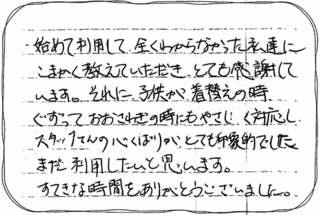 始めて利用して、全くわからなかった私達に
こまかく教えていただき、とても感謝して
います。それに、子供が、着替えの時
ぐずって、おおさわぎの時にもやさしく対応し、
スタッフさんの心くばりが、とても印象的でした
また利用したいと思います。
すてきな時間をありがとうございました。